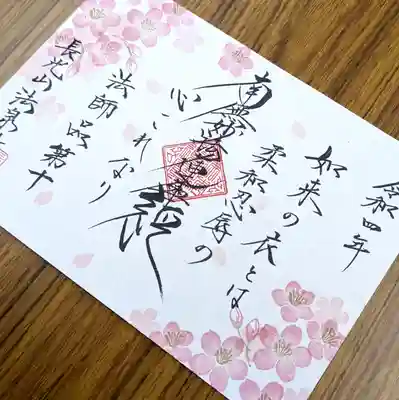 令和四年
如来の衣とは
柔和忍辱の
南無妙法蓮華経
心これなり
法師品第十
長光山法泉